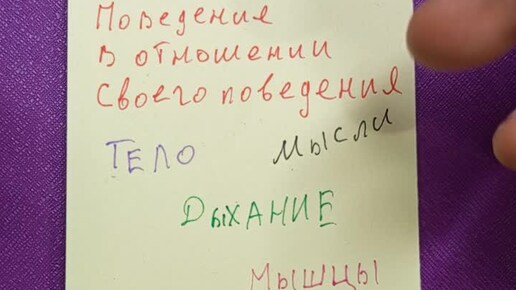 Поведения
в отношении
своего поведения
ТЕЛО мысли
ДыХАНИЕ
МЫШЦЫ